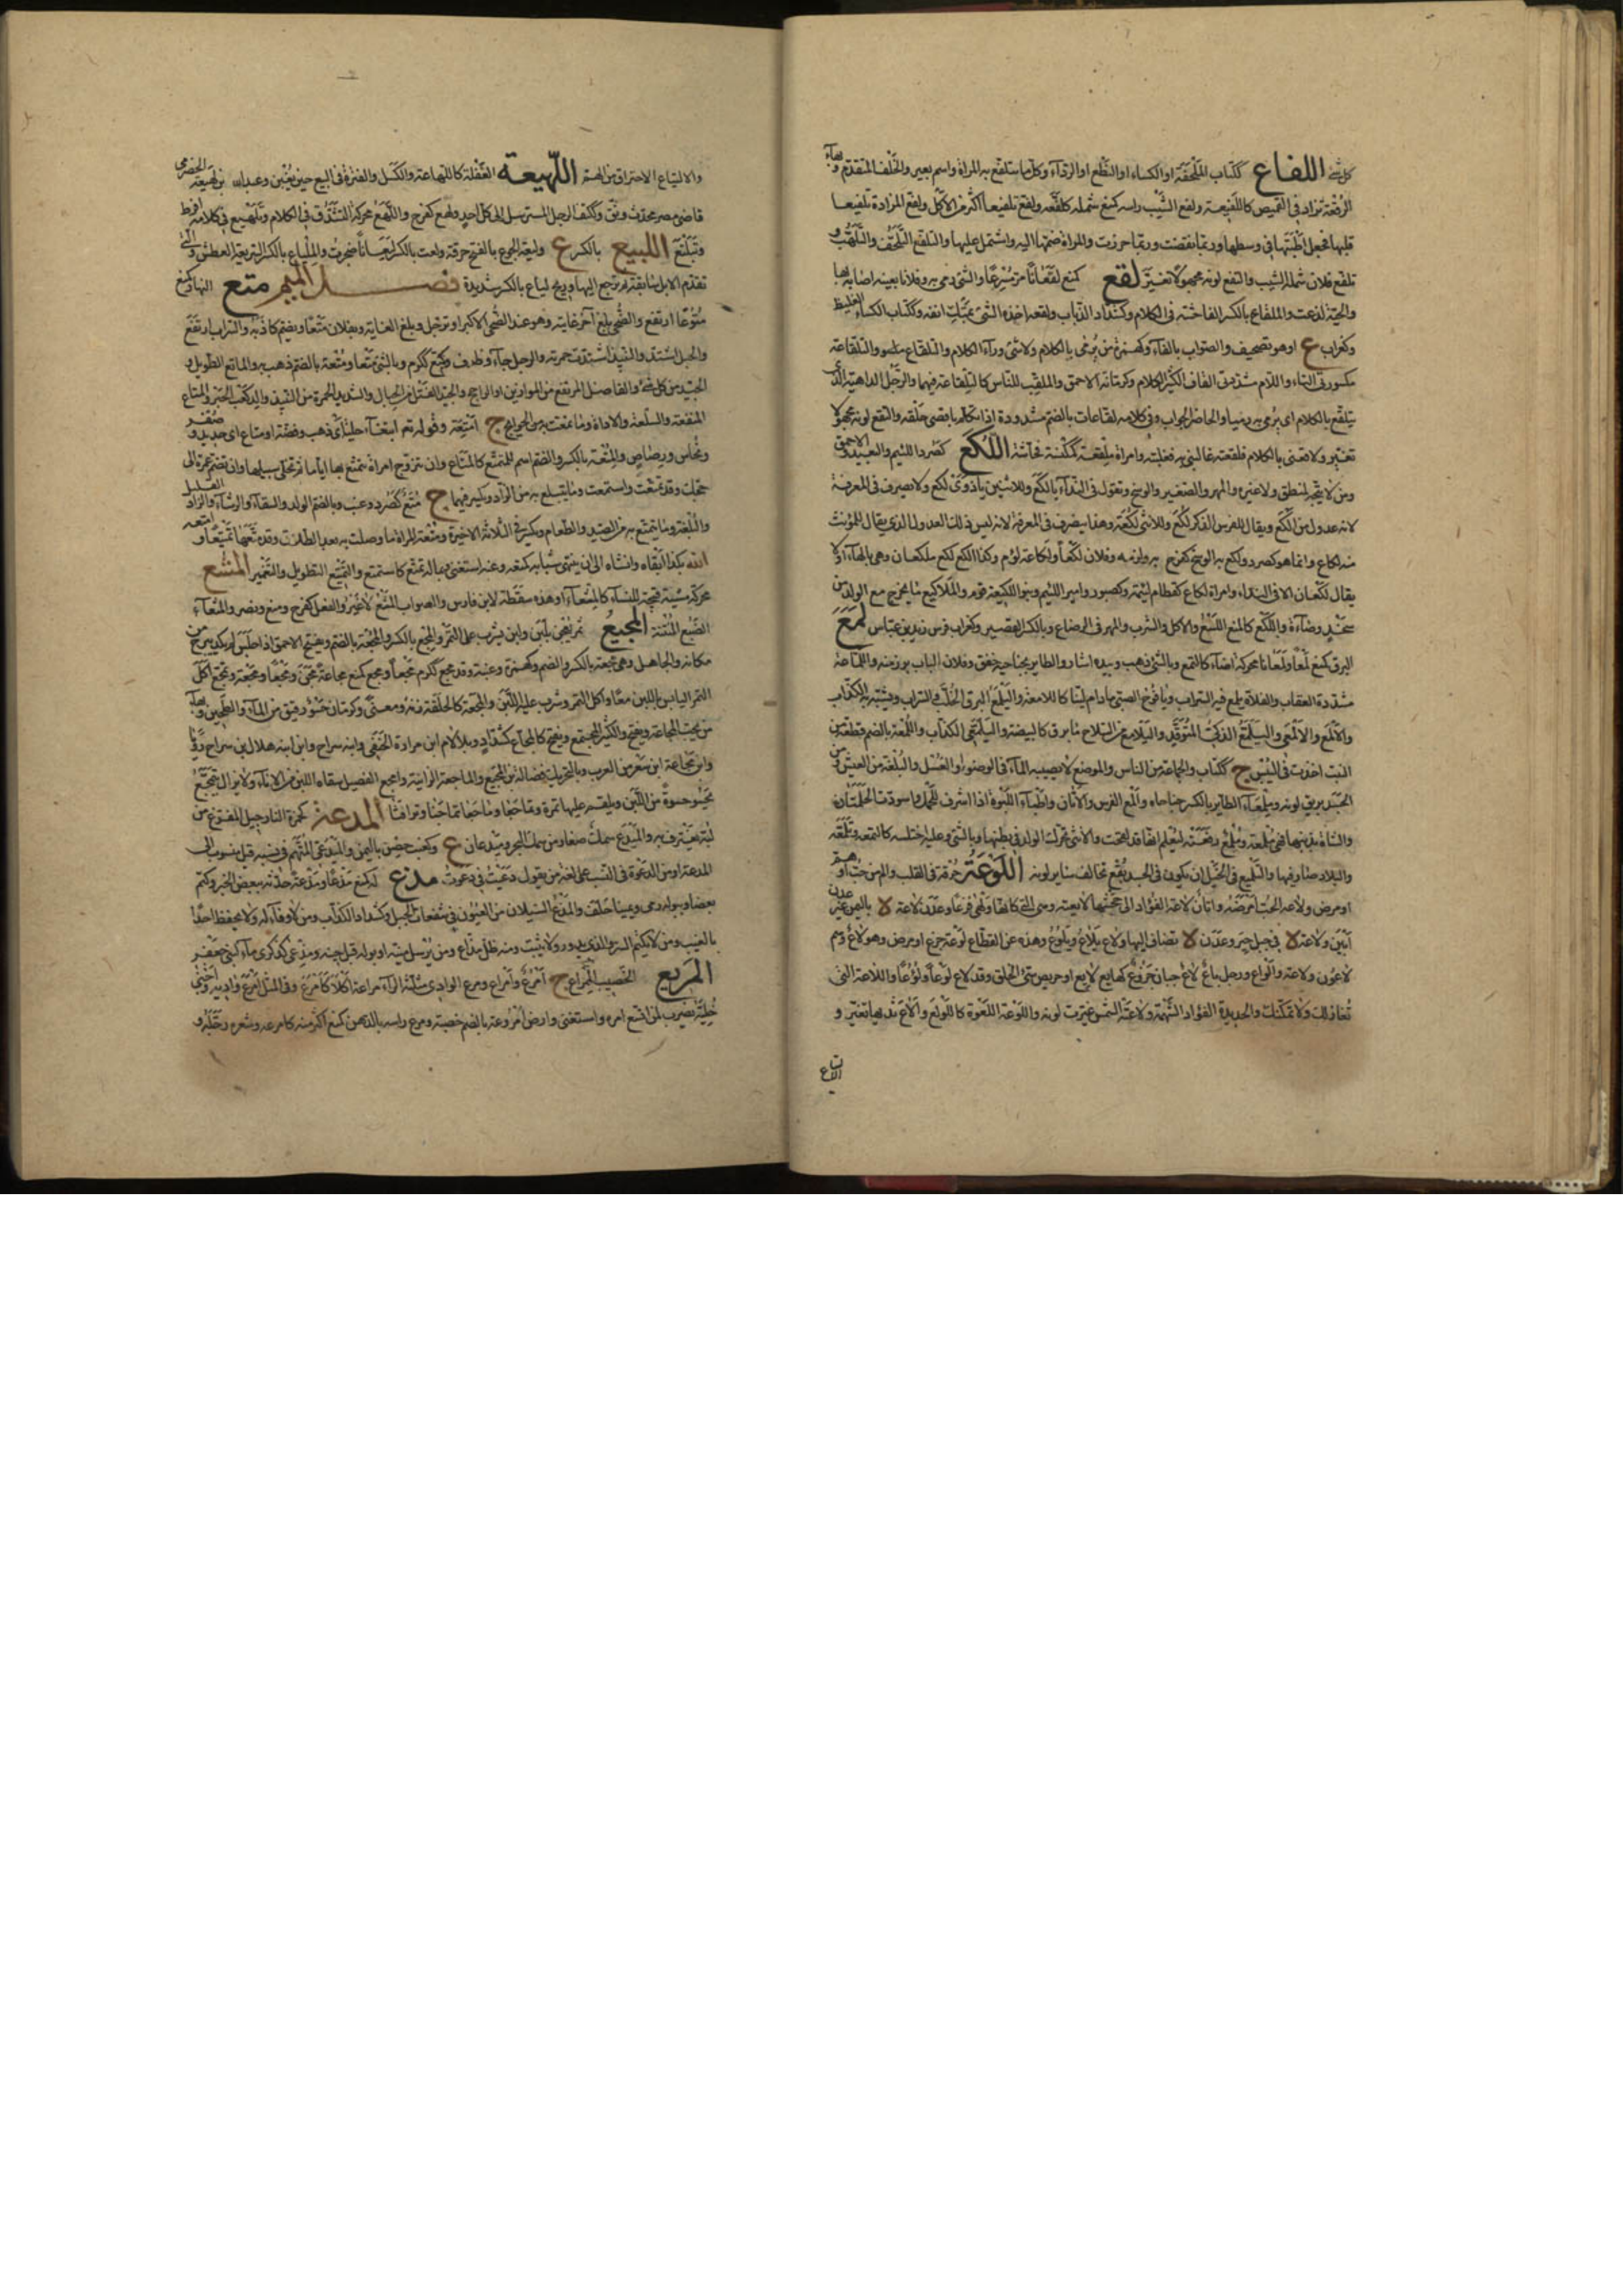 كل شئ اللفاع ككتاب الملحفة او الكساء او النطع او الرداء وكل ما تتلفع به المراة واسم بعير والخلف المتقدم وبهاء
الرقعة تزاد في القميص كاللفيعة ولفع الشيب راسه كمنع شمله كلفعه ولفع تلفيعا اكثر من الاكل ولفع المزادة تلفيعا
قلبها فجعل اطبتها في وسطها وربما نقضت وربما خرزت والمراة ضمها اليه واشتمل عليها والتلفع التلحف والتلهب و
تلفع فلان شمله الشيب والتفع لونه مجهولا تغير لقع كمنع لقعانا مر مسرعا والشئ رمى به وفلانا بعينه اصابه بها
والحية لذعت والملقاع بالكسر الفاحشة في الكلام وكشداد الذباب ولقعه اخذه الشئ بمتك انفه وككتاب الكساء الغليظ
وكغراب ع او هو تصحيف والصواب بالفاء وكهمزة من يرمى بالكلام ولا شئ وراء الكلام والتلقاع والتلقاعة
مكسورتي التاء واللام مشددتي القاف الكثير الكلام وكرمانة الاحمق والملقب للناس كالتلقاعة فيهما والرجل الداهية الذي
يتلقع بالكلام اى يرمى به رميا والحاضر الجواب وفي كلامه لقاعات بالضم مشددة اذا تكلم باقصى حلقه والتقع لونه مجهولا
تغير ولاقعنى بالكلام فلقعته غالبنى به فغلبته وامراة ملقعة كمكنسة فحاشة اللكع كصرد اللئيم والعبد والاحمق
ومن لا يتجه لمنطق ولا غيره والمهر والصغير والوسخ وتقول في النداء يالكع وللاثنين ياذوى لكع ولا يصرف في المعرفة
لانه معدول من الكع ويقال للفرس الذكر لكع وللانثى لكعة وهذا ينصرف في المعرفة لانه ليس ذلك العدل الذى يقال للمؤنث
منه لكاع وانما هو كصرد ولكع به الوسخ كفرح به ولزمه وفلان لكعا ولكاعة لؤم وكذا الكع لكع ملكعان وهى بالهاء او لا
يقال ملكعان الا في النداء وامراة لكاع كقطام لئيمة وكصبور وامير اللئيم وبنو اللكيعة قوم والملاكيع ما يخرج مع الولد من
سخد وصاءة واللكع كالمنع اللسع والاكل والشرب والنهز في الرضاع وبالكسر القصير وكغراب فرس زيد بن عباس لمع
البرق كمنع لمعا ولمعانا محركة اضاء كالتمع وبالشئ ذهب وبيده اشار والطاير بجناحيه خفق وفلان الباب برز منه واللماعة
مشددة العقاب والفلاة يلمع فيها السراب ويافوخ الصبى مادام لينا كاللامعة واليلمع البرق الخلب والسراب ويشبه به الكذاب
والالمع والالمعى واليلمعى الذكى المتوقد واليلامع من السلاح ما برق كالبيضة واليلمعى الكذاب واللمعة بالضم قطعة من
النبت اخذت في اليبس ج ككتاب والجماعة من الناس والموضع لا يصيبه الماء في الوضوء او الغسل والبلغة من العيش ومن
الجسد بريق لونه وملمعا الطاير بالكسر جناحاه والمع الفرس والاتان واطباء اللبوة اذا اشرف للحمل واسودت الحلمتان
والشاة بذنبها فهى ملمعة وملمع رفعته ليعلم انها قد لقحت والانثى تحرك الولد في بطنها وبالشئ وعليه اختلسه كالتمعه وتلمعه
والبلاد صار فيها والتلميع في الخيل ان يكون في الجسد بقع تخالف ساير لونه اللوعة حرقة في القلب والم من حب او هم
او مرض ولاعه الحب امرضه واتان لاعة الفؤاد الى جحشها لايعته وهى التى كانها ولهى فزعا وعدن لاعة لا باليمن غير عدن
ابين ولاعة لا في جبل صبر وعدن لا تضاف اليها ولاع يلاع ويلوع وهذه عن القطاع لوعة جزع او مرض وهو لاع وهم
لاعون ولاعة والواع ورجل هاع لاع جبان جزوع كهايع لايع او حريص سئ الخلق وقد لاع لوعا ولووعا واللاعة التى
تغازلك ولا تمكنك والحديدة الفؤاد الشهمة ولاعته الشمس غيرت لونه واللوعة اللعوة كاللولع والاع ثديها تغير و
الاع
والالتياع الاحتراق من الهم اللهيعة الغفلة كاللهاعة والكسل والفترة في البيع حين يغبن وعبد الله بن لهيعة الحضرمى
قاضى مصر محدث وثق وككتف الرجل المسترسل الى كل احد ولهع كفرح واللهع محركة التشدق في الكلام وتلهيع في كلامه افرط
وتبلتع الليع بالكسر ع وليعة الجوع بالفتح حرقته ولعت بالكسر ليعانا ضجرت والملياع بالكسر السريعة العطش والتى
تقدم الابل سابقة ثم ترجع اليها وريح لياع بالكسر شديدة فصل الميم متع النهار كمنع
متوعا ارتفع والضحى بلغ آخر غايته وهو عند الضحى الاكبر او ترجل وبلغ الغاية وبفلان متعا ويضم كاذبه والسراب ارتفع
والحبل اشتد والنبيذ اشتدت حمرته والرجل جاد وظرف كمتع ككرم وبالشئ متعا ومتعة بالضم ذهب به والماتع الطويل و
الجيد من كل شئ والفاضل المرتفع من الموازين او الراجح والجيد الفتل من الحبال والشديد الحمرة من النبيذ والمتاع
المنفعة والسلعة والاداة وما تمتعت به من الحوايج ج امتعة وقوله تعالى ابتغاء حلية اى ذهب وفضة او متاع اى حديد وصفر
ونحاس ورصاص والمتعة بالكسر والضم اسم للتمتع كالمتاع وان تتزوج امراة تتمتع بها اياما ثم تخلى سبيلها وان تضم عمرة الى
حجك وقد تمتعت واستمتعت وما يتبلغ به من الزاد ويكسر فيهما ج متع كصرد وعنب وبالضم الدلو والسقاء والرشاء والزاد القليل
والبلغة وما يتمتع به من الصيد والطعام ويكسر في الثلاثة الاخيرة ومتعة المراة ما وصلت به بعد الطلاق وقد متعها تمتيعا و امتعه
الله بكذا ابقاه وانشاه الى ان ينتهى شبابه كمتعه وعنه استغنى وبماله تمتع كاستمتع والتمتيع التطويل والتعمير المثع
محركة مشية قبيحة للنساء كالمثعاء او هذه سقطة لابن فارس والصواب المثع لا غير والفعل كفرح ومنع ونصر والمثعاء
الضبع المنتنة المجيع تمر يعجن بلبن ولبن يشرب على التمر والمجع بالكسر والمجعة بالضم ويفتح الاحمق اذا جلس لم يكد يبرح من
مكانه والجاهل وهى مجعة بالكسر والضم وكهمزة وعنبة وقد مجع ككرم مجعا ومجع كمنع مجاعة مجن ومجعا ومجعة وتمجع اكل
التمر اليابس باللبن معا او اكل التمر وشرب عليه اللبن والمجعة كالجلفة زنة ومعنى وكرمان حسو رقيق من الماء والطحين وبهاء
من يحب المجاعة ويفتح والكثير التمجع ويفتح كالمجاع كشداد وبلا لام ابن مرارة الحنفى وابنه سراج وابن ابنه هلال بن سراج رووا
وابن مجاعة ابن سعر من العرب وبالتحريك فضالة بن المجيع والماجعة الزانية وامجع الفصيل سقاه اللبن من الاناء ولا يزال يتمجع
يحسو حسوة من اللبن ويلقم عليها تمرة وتماجعا وماجعا تماجنا وترافثا المدعة كجرة النارجيل المفرغ من
لبه يغترف به والميدع سمك صغار من سمك البحر وميدعان ع وكعنب حصن باليمن والميدعى المتهم في نسبه قيل منسوب الى
المدعة او من الدعوة في النسب على لغة من يقول دعيت في دعوت مدع له كمنع مذعا ومذعة حدثه ببعض الخبر وكتم
بعضا وببوله رمى ويمينا حلف والمذع السيلان من العيون في شعفات الجبل وكشداد الكذاب ومن لا وفاء له ولا يحفظ احدا
بالغيب ومن لا يكتم السر والذى يدور ولا يثبت ومنه ظل مذاع ومن يرسل منيه او بوله قبل حينه ومذعى كذكرى ماء لبنى جعفر
المريع الخصيب كالممراع ج امرع وامراع ومرع الوادى مثلثة الراء مراعة اكلا كامرع وفي المثل امرع واديه واجنى
حلبه يضرب لمن اتسع امره واستغنى وارض امروعة بالضم خصبة ومرع راسه بالدهن كمنع اكثر منه كامرعه وشعره رجله و